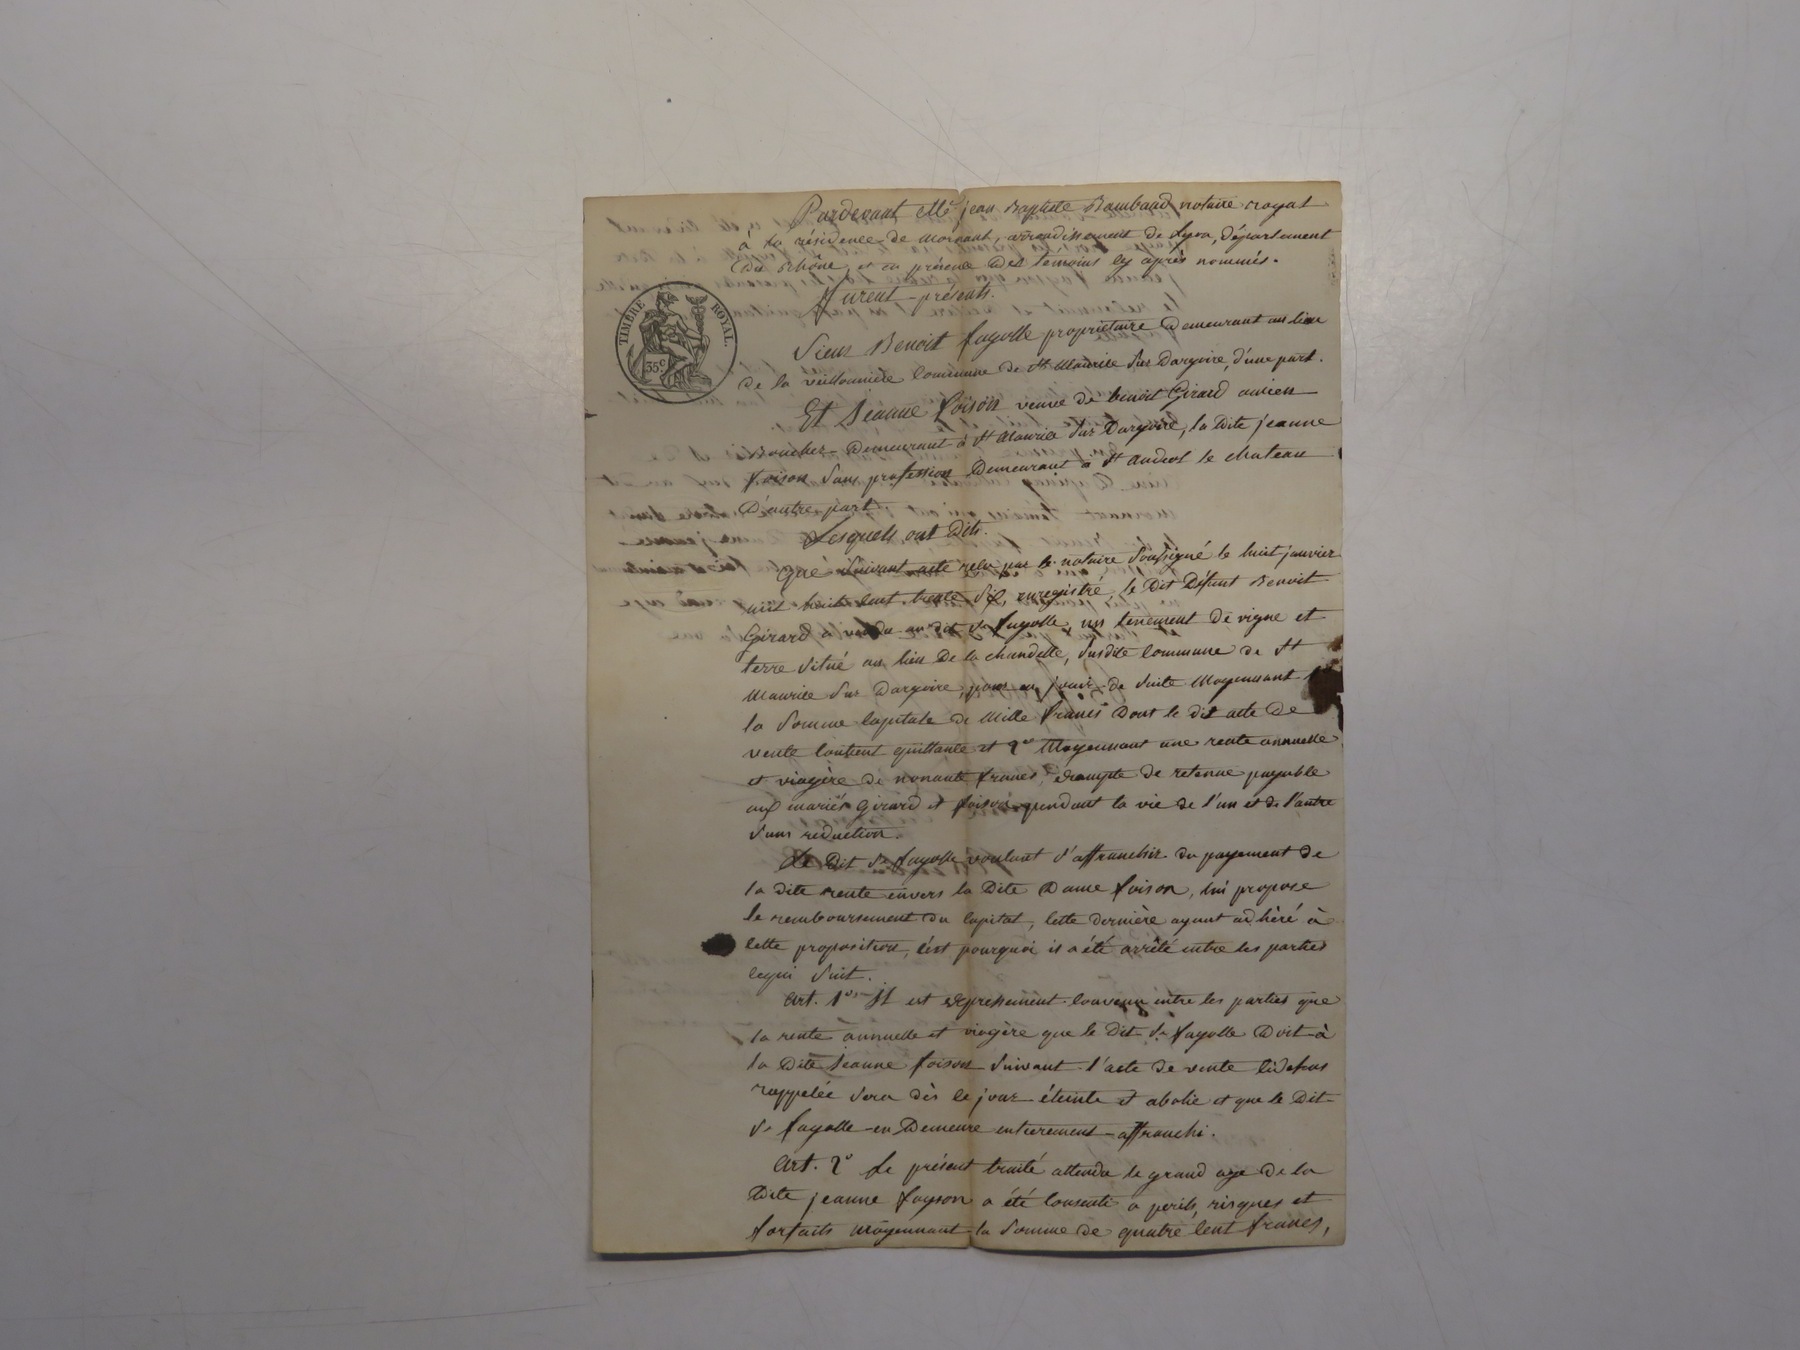 Pardevant Me jean Baptiste Bambaud notaire royal
à la résidence de Mornant, arrondissement de Lyon, département
du Rhône, et en présence des témoins cy après nommés.
furent présents.
TIMBRE ROYAL.
35 C
Sieur Benoit fayolle propriétaire demeurant au lieu
de la commune de St Maurice sur Dargoire, d'une part.
Et Jeanne foison veuve de benoit Girard ancien
Boucher demeurant à St Maurice sur Dargoire, la dite jeanne
foison sans profession demeurant à St andéol le chateau
D'autre part
Lesquels ont dits.
Que suivant acte reçu par le notaire soussigné le huit janvier
mil huit cent trente six, enregistré, le dit défunt Benoit
Girard a vendu au dit Sr fayolle, un tenement de vigne et
terre situé au lieu de la chandelle, susdite commune de St
Maurice sur Dargoire, pour en jouir de suite Moyennant
la somme capitale de Mille francs dont le dit acte de
vente contient quittance et 2° Moyennant une rente annuelle
et viagère de nonante francs, exempte de retenue payable
aux mariés Girard et foison pendant la vie de l'un et de l'autre
sans reduction.
Le dit Sr fayolle voulant s'affranchir du payement de
la dite rente envers la dite Dame foison, lui propose
le remboursement du capital, cette dernière ayant adhéré à
cette proposition, c'est pourquoi il a été arrêté entre les parties
cequi suit.
Art. 1er Il est expressement convenu entre les parties que
la rente annuelle et viagère que le dit Sr fayolle doit à
la dite Jeanne foison suivant l'acte de vente cidessus
rappelée sera dès ce jour éteinte et abolie et que le dit
Sr fayolle en demeure entierement affranchi.
Art. 2° Le présent traité attendu le grand age de la
dite jeanne foyson a été consenti a perils, risques et
forfaits moyennant la somme de quatre cent francs,